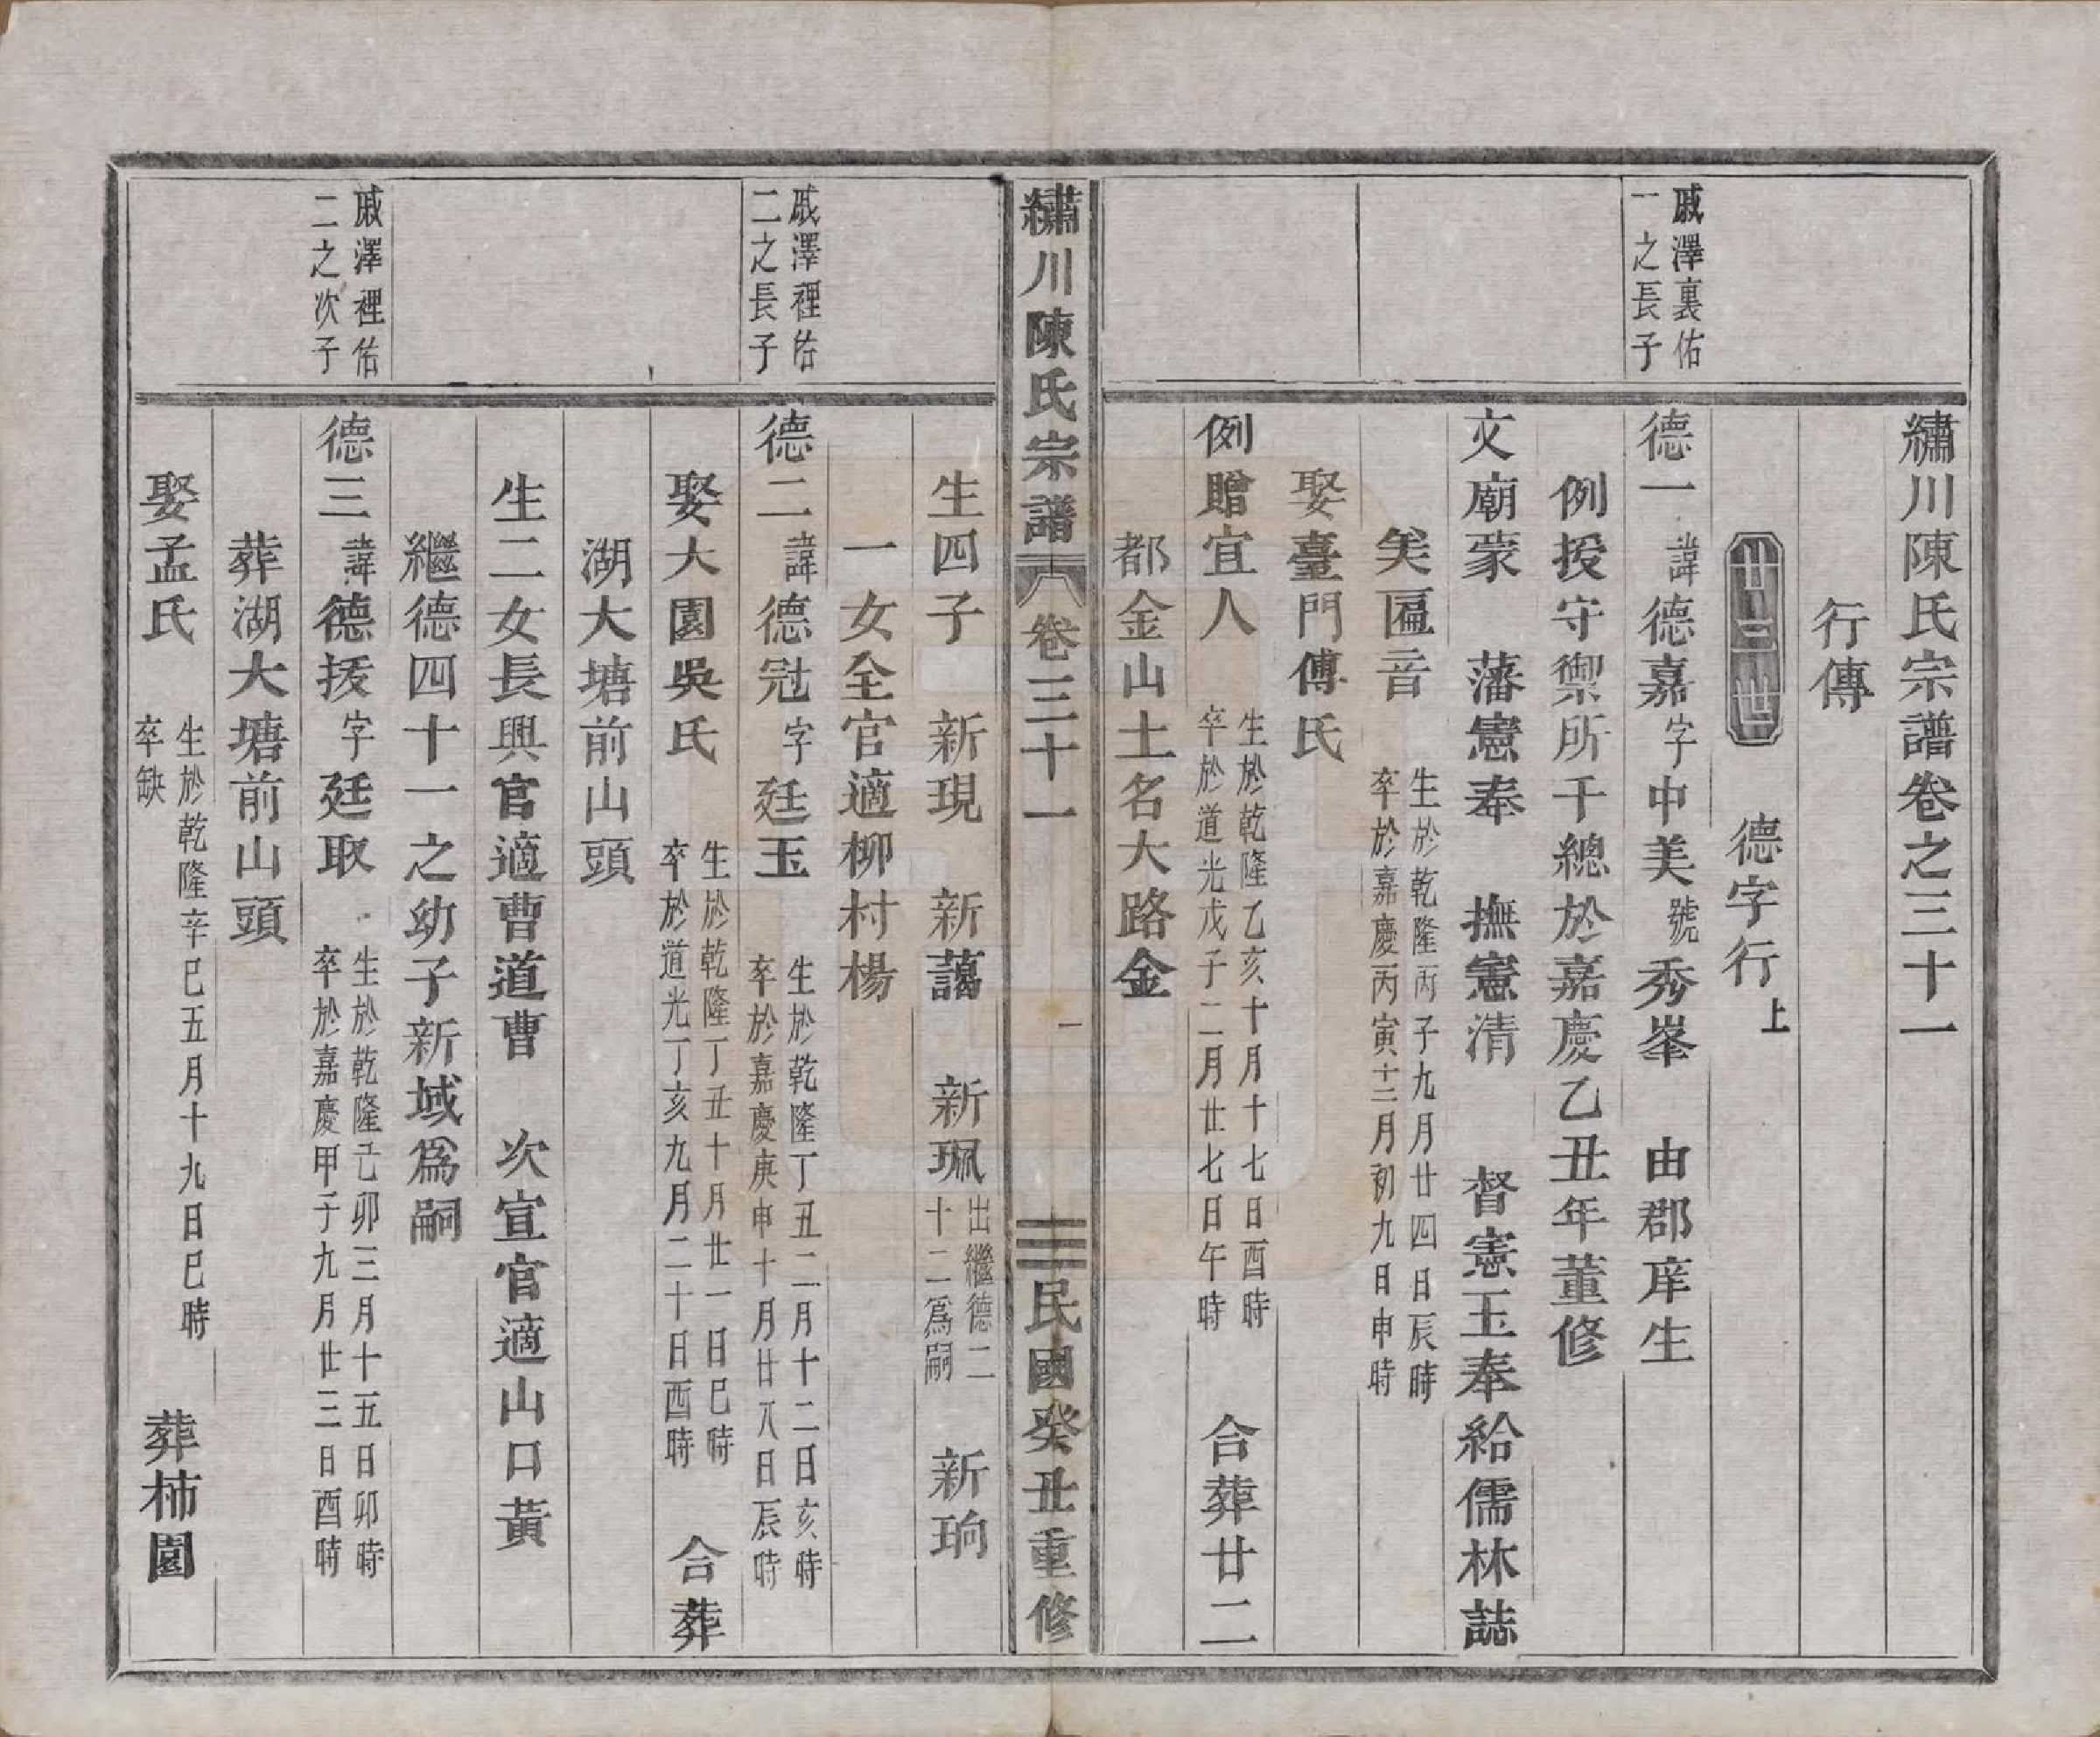 繡川陳氏宗譜卷之三十一
行傳
廿三世 德字行上
戚澤裏佑
一之長子
德一 諱德嘉字中美號秀峯 由郡庠生
例授守禦所千總於嘉慶乙丑年董修
文廟蒙 藩憲奉 撫憲清 督憲玉奉給儒林誌
矣匾音 生於乾隆丙子九月廿四日辰時
卒於嘉慶丙寅十二月初九日申時
娶臺門傅氏
例贈宜人 生於乾隆乙亥十月十七日酉時
卒於道光戊子二月廿七日午時 合葬廿二
都金山土名大路金
繡川陳氏宗譜 卷三十一 一 民國癸丑重修
生四子 新現 新藹 新珮 出繼德二
十二爲嗣 新珦
一女全官適柳村楊
戚澤裡佑
二之長子
德二 諱德冠字廷玉 生於乾隆丁丑二月十二日亥時
卒於嘉慶庚申十月廿八日辰時
娶大園吳氏 生於乾隆丁丑十月廿一日巳時
卒於道光丁亥九月二十日酉時 合葬
湖大塘前山頭
生二女長興官適曹道曹 次宣官適山口黃
繼德四十一之幼子新域爲嗣
戚澤裡佑
二之次子
德三 諱德授字廷取 生於乾隆己卯三月十五日卯時
卒於嘉慶甲子九月廿三日酉時
葬湖大塘前山頭
娶孟氏 生於乾隆辛巳五月十九日巳時
卒缺 葬柿園